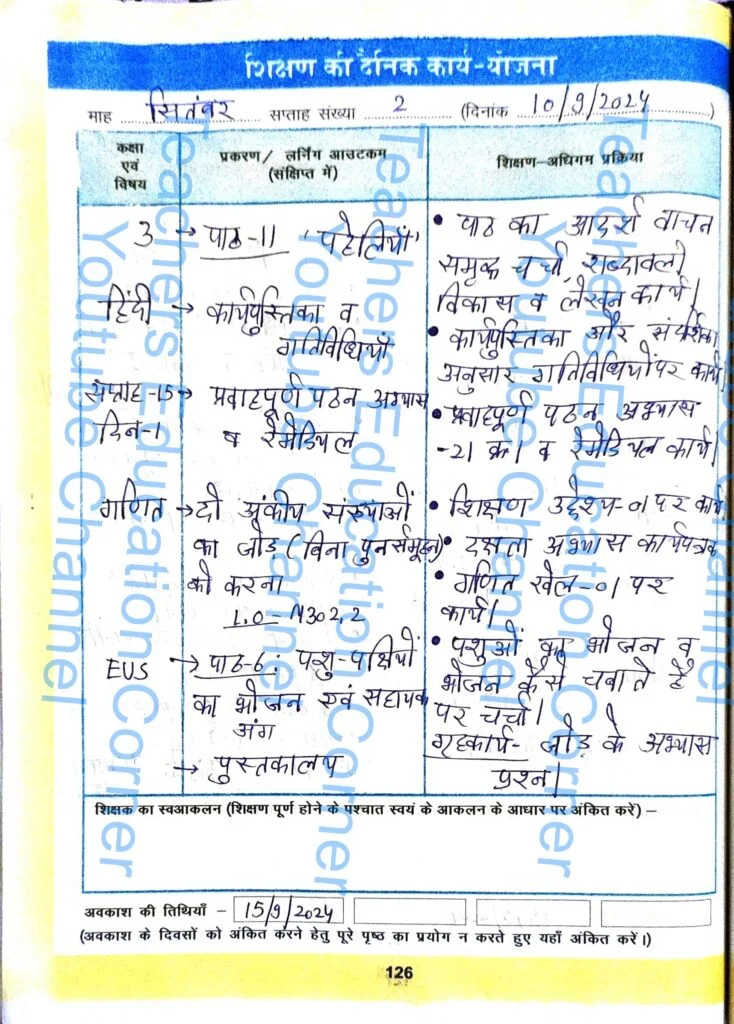 शिक्षण की दैनिक कार्य-योजना
माह सितंबर सप्ताह संख्या 2 (दिनांक 10/9/2024)
कक्षा एवं विषय
प्रकरण/ लर्निंग आउटकम (संक्षिप्त में)
शिक्षण-अधिगम प्रक्रिया
3 → पाठ-11 'पहेलियाँ'
हिंदी → कार्यपुस्तिका व
गतिविधियाँ
सप्ताह-15 → प्रवाहपूर्ण पठन अभ्यास
दिन-1 व रेमेडियल
गणित → दो अंकीय संख्याओं
का जोड़ (बिना पुनर्समूहन)
को करना
L.O-M302.2
EVS → पाठ-6: पशु-पक्षियों
का भोजन एवं सहायक
अंग
→ पुस्तकालय
• पाठ का आदर्श वाचन
समूह चर्चा, शब्दावली
विकास व लेखन कार्य।
• कार्यपुस्तिका और संदर्शिका
अनुसार गतिविधियों पर कार्य
• प्रवाहपूर्ण पठन अभ्यास
-21 क्र। व रेमेडियल कार्य।
• शिक्षण उद्देश्य-01 पर कार्य
• दक्षता अभ्यास कार्यपत्रक
• गणित खेल-01 पर
कार्य।
• पशुओं का भोजन व
भोजन कैसे चबाते है
पर चर्चा।
गृहकार्य- जोड़ के अभ्यास
प्रश्न।
शिक्षक का स्वआकलन (शिक्षण पूर्ण होने के पश्चात स्वयं के आकलन के आधार पर अंकित करें) –
अवकाश की तिथियाँ – 15/9/2024
(अवकाश के दिवसों को अंकित करने हेतु पूरे पृष्ठ का प्रयोग न करते हुए यहाँ अंकित करें।)
126
Teachers Education Corner
Youtube Channel
Teachers Education Corner
Youtube Channel
Teachers Education Corner
Youtube Channel